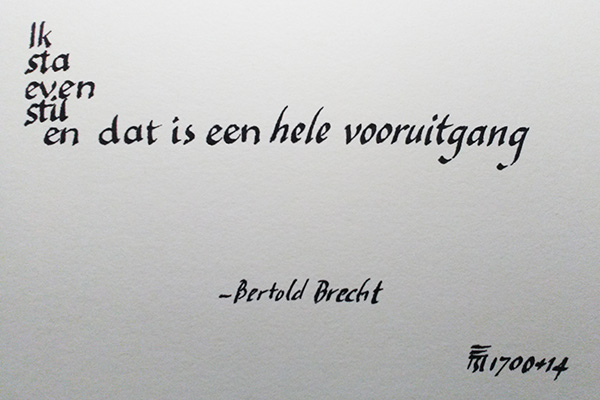 Ik
sta
even
stil
en dat is een hele vooruitgang
-Bertold Brecht
1700+14